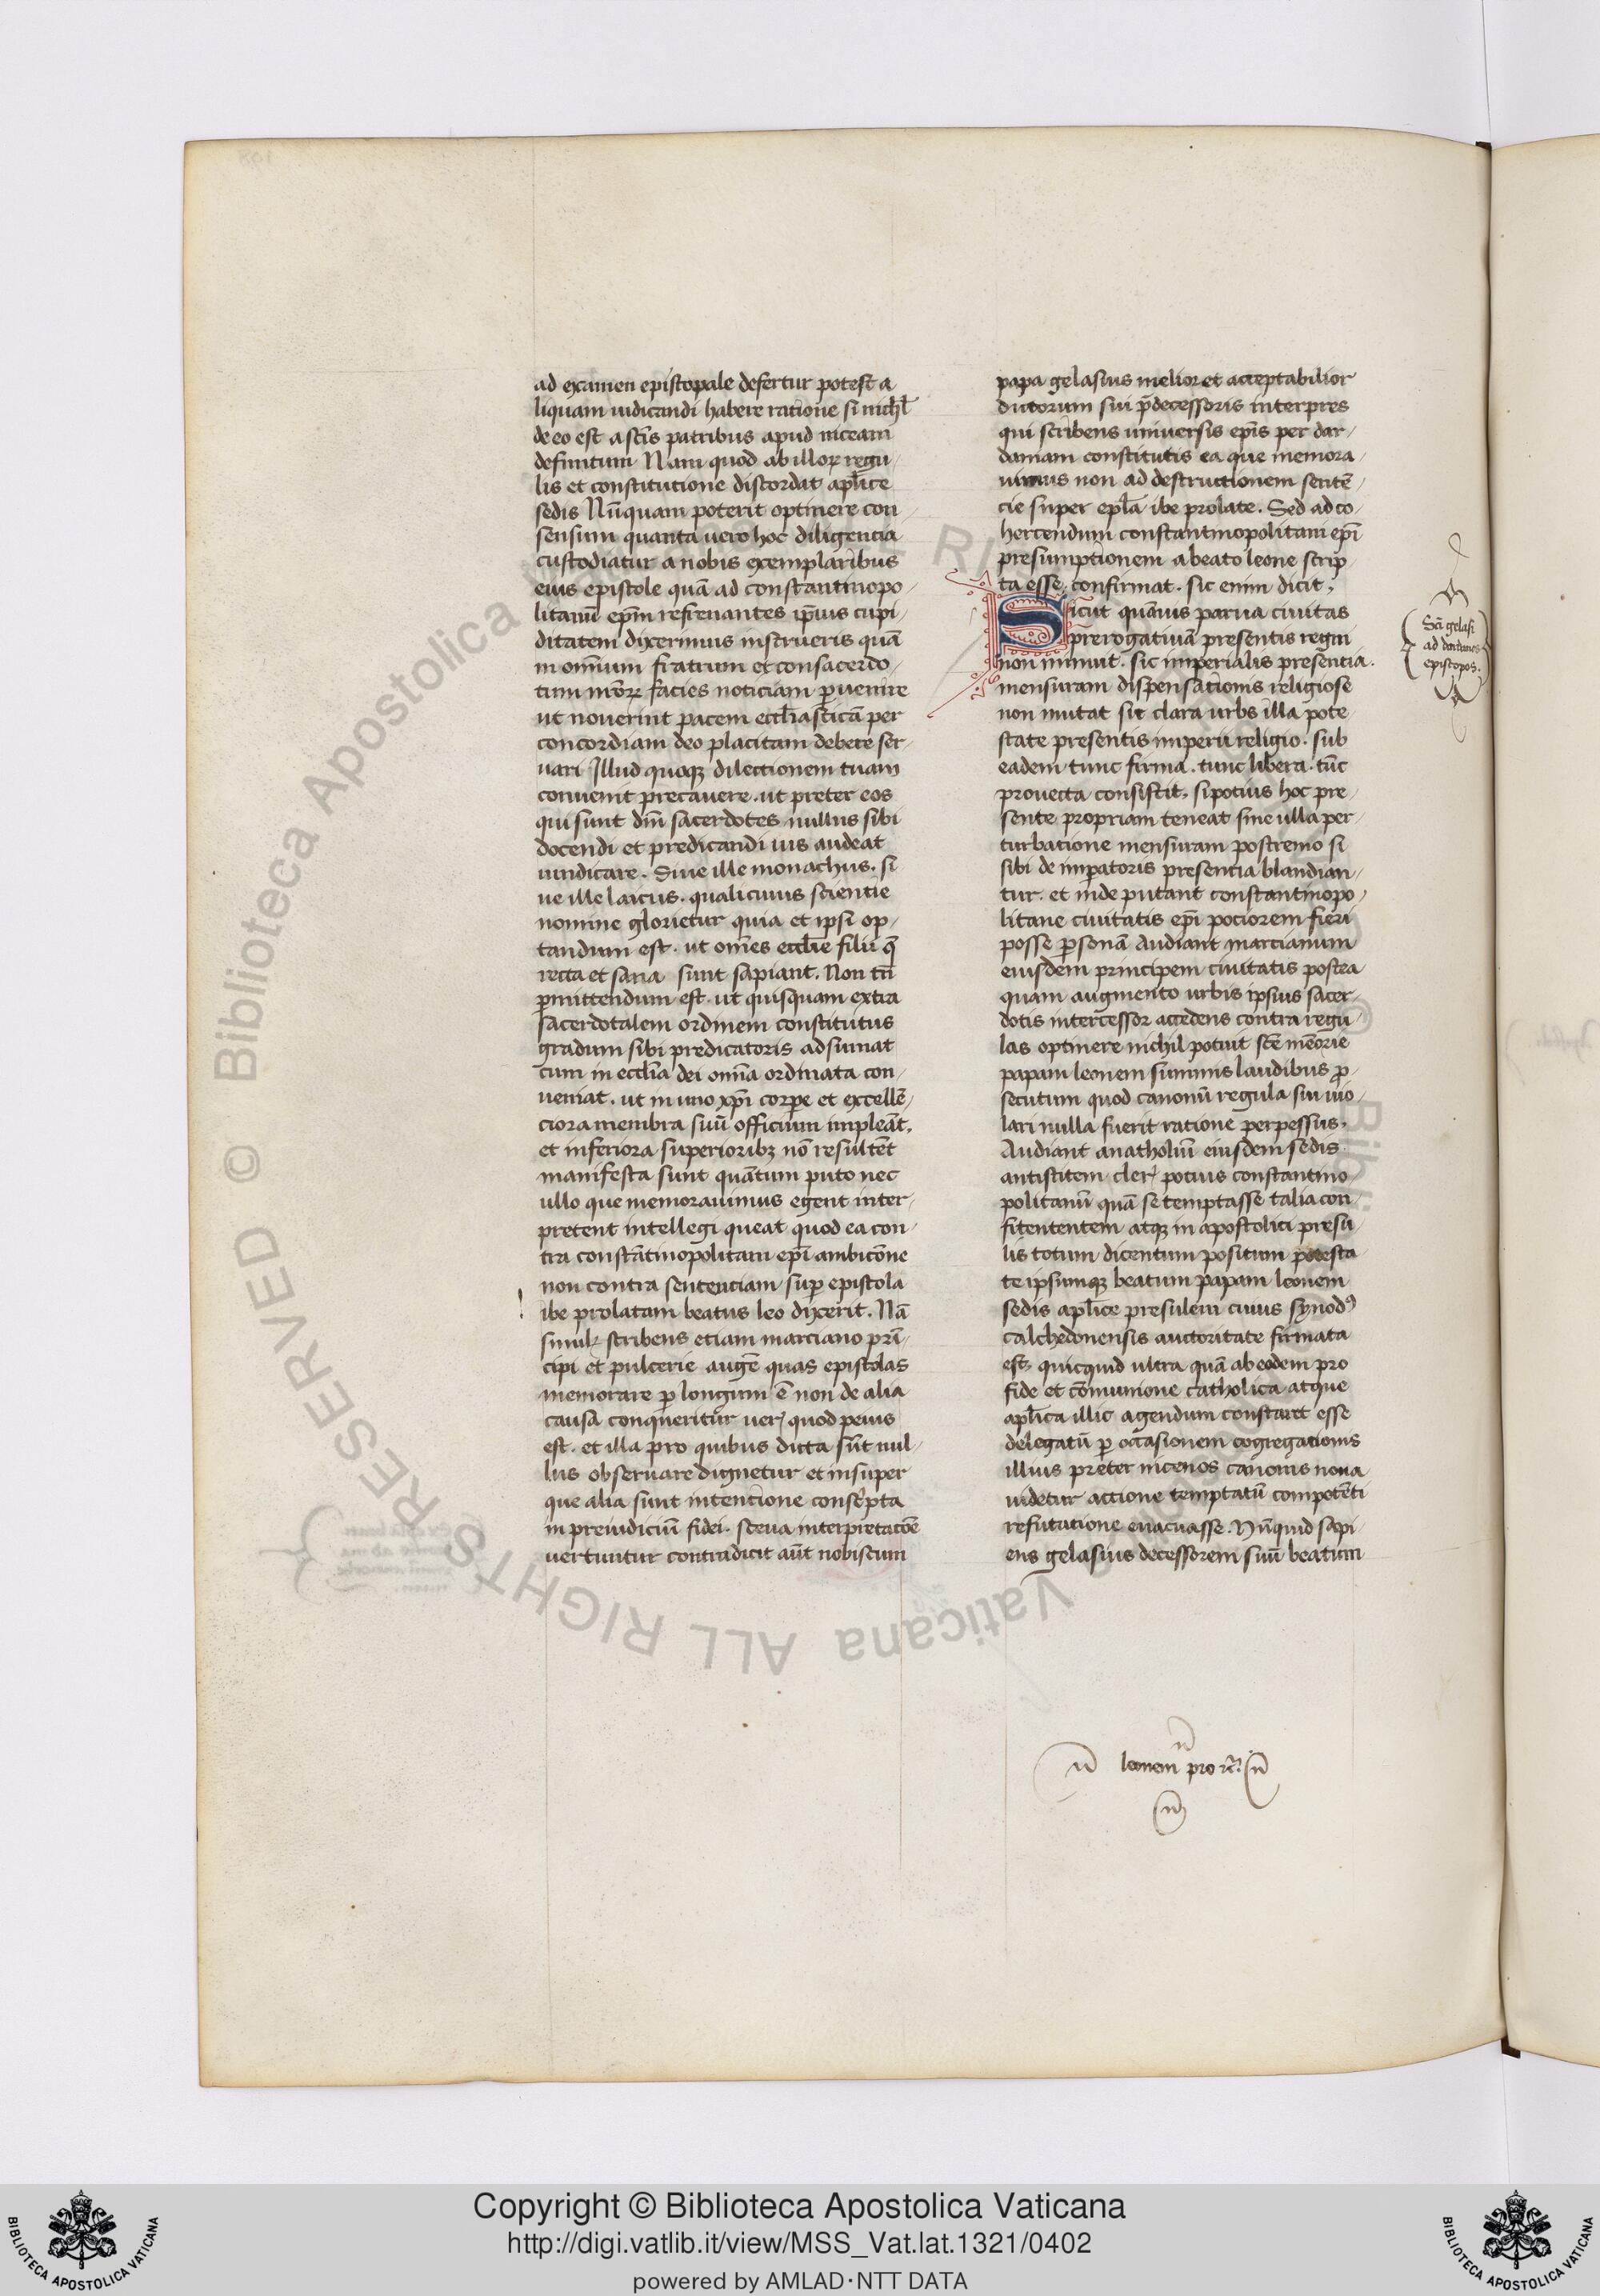 ad examen episcopale defertur potest a
liquam iudicandi habere ratione si nichl̄
de eo est a sc̄is patribus apud niceam
definitum Nam quod ab illoꝝ regu-
lis et constitutione discordat apl̄ice
sedis Nūquam poterit optinere con-
sensum quanta uero hoc diligencia
custodiatur a nobis exemplaribus
eius epistole quā ad constantinopo-
litanū ep̄m refrenantes ip̄ius cupi-
ditatem diximus instrueris quā
in omnium fratrum et consacerdo-
tum nr̄oꝝ facies noticiam ꝑuenire
ut nouerint pacem eccl̄iasticā per
concordiam deo placitam debere ser-
uari Illud quoqꝫ dilectionem tuam
conuenit precauere. ut preter eos
qui sunt dn̄i sacerdotes nullus sibi
docendi et predicandi ius audeat
uindicare. Siue ille monachus. si
ue ille laicus. qualicuius scientie
nomine glorietur quia et ipsi op-
tandum est. ut om̄es eccl̄ie filii q̄
recta et sana sunt sapiant. Non tn̄
ꝑmittendum est. ut quisquam extra
sacerdotalem ordinem constitutus
gradum sibi predicatoris adsumat
cum in eccl̄ia dei om̄ia ordinata con-
ueniat. ut in uno xp̄i corꝑe et excellē-
ciora membra suū officium impleāt.
et inferiora superioribꝫ nō resultēt
manifesta sunt quātum puto nec
ullo que memorauimus egent inter-
pretent intellegi queat quod ea con-
tra constātinopolitani ep̄i ambicōne
non contra sentenciam suꝑ epistola
ibe prolatam beatus leo dixerit. Nā
simulr scribens etiam marciano prī-
cipi et pulcerie augē quas epistolas
memorare ꝑ longum ē non de alia
causa conqueritur uer̄ quod peius
est. et illa pro quibus dicta sūt nul-
lus obseruare dignetur et insuper
que alia sunt intencione conscͥpta
in preiudiciū fidei. sceua interpretacōe
uertuntur contradicit aūt nobiscum
papa gelasius melior et acceptabilior
dictorum sui p̄decessoris interpres
qui scribens uniuersis ep̄is per dar-
daniam constitutis ea que memora-
uimus non ad destructionem sentē-
cie super epl̄a ibe prolate. Sed ad co-
hercendum constantinopolitani ep̄i
presumptionem a beato leone scrip-
ta esse confirmat. sic enim dicit.
Sicut quāuis parua ciuitas
prerogatiuā presentis regni
non minuit. sic imperialis presentia.
mensuram dispensationis religiose
non mutat sit clara urbs illa pote
state presentis imperii religio. sub
eadem tunc firma. tunc libera. tūc
prouecta consistit. si potius hoc pre-
sente propriam teneat sine ulla per-
turbatione mensuram postremo si
sibi de imꝑatoris presencia blandian-
tur. et inde putant constantinopo-
litane ciuitatis ep̄i pociorem fieri
posse ꝑsonā Audiant marcianum
eiusdem principem ciuitatis postea
quam augmento urbis ipsius sacer-
dotis intercessor accedens contra regu-
las optinere nichil potuit sc̄e mēorie
papam leonem summis laudibus ꝓ-
secutum quod canonū regula sui uio-
lari nulla fuerit ratione perpessus.
Audiant anatholiū eiusdem sedis
antistitem cler̄ potius constantino-
politanū quā se temptasse talia con-
fitententem atqꝫ in apostolici presu-
lis totum dicentum positum potesta-
te ipsumqꝫ beatum papam leonem
sedis apl̄ice presulem cuius synodꝰ
calchedonensis auctoritate firmata
est. quicquid ultra quā ab eodem pro
fide et cōmunione catholica atque
apl̄ica illic agendum constaret esse
delegatū ꝑ occasionem cogregationis
illius preter nicenos canonis noua
uidetur actione temptatū competēti
refutatione euacuasse. Nūquid sapi-
ens gelasius decessorem suū beatum
Sc̄i gelasi
ad dardanos
episcopos.
leonem pro
Copyright © Biblioteca Apostolica Vaticana
http://digi.vatlib.it/view/MSS_Vat.lat.1321/0402
powered by AMLAD·NTT DATA
BIBLIOTECA APOSTOLICA VATICANA
BIBLIOTECA APOSTOLICA VATICANA
© Biblioteca Apostolica Vaticana ALL RIGHTS RESERVED